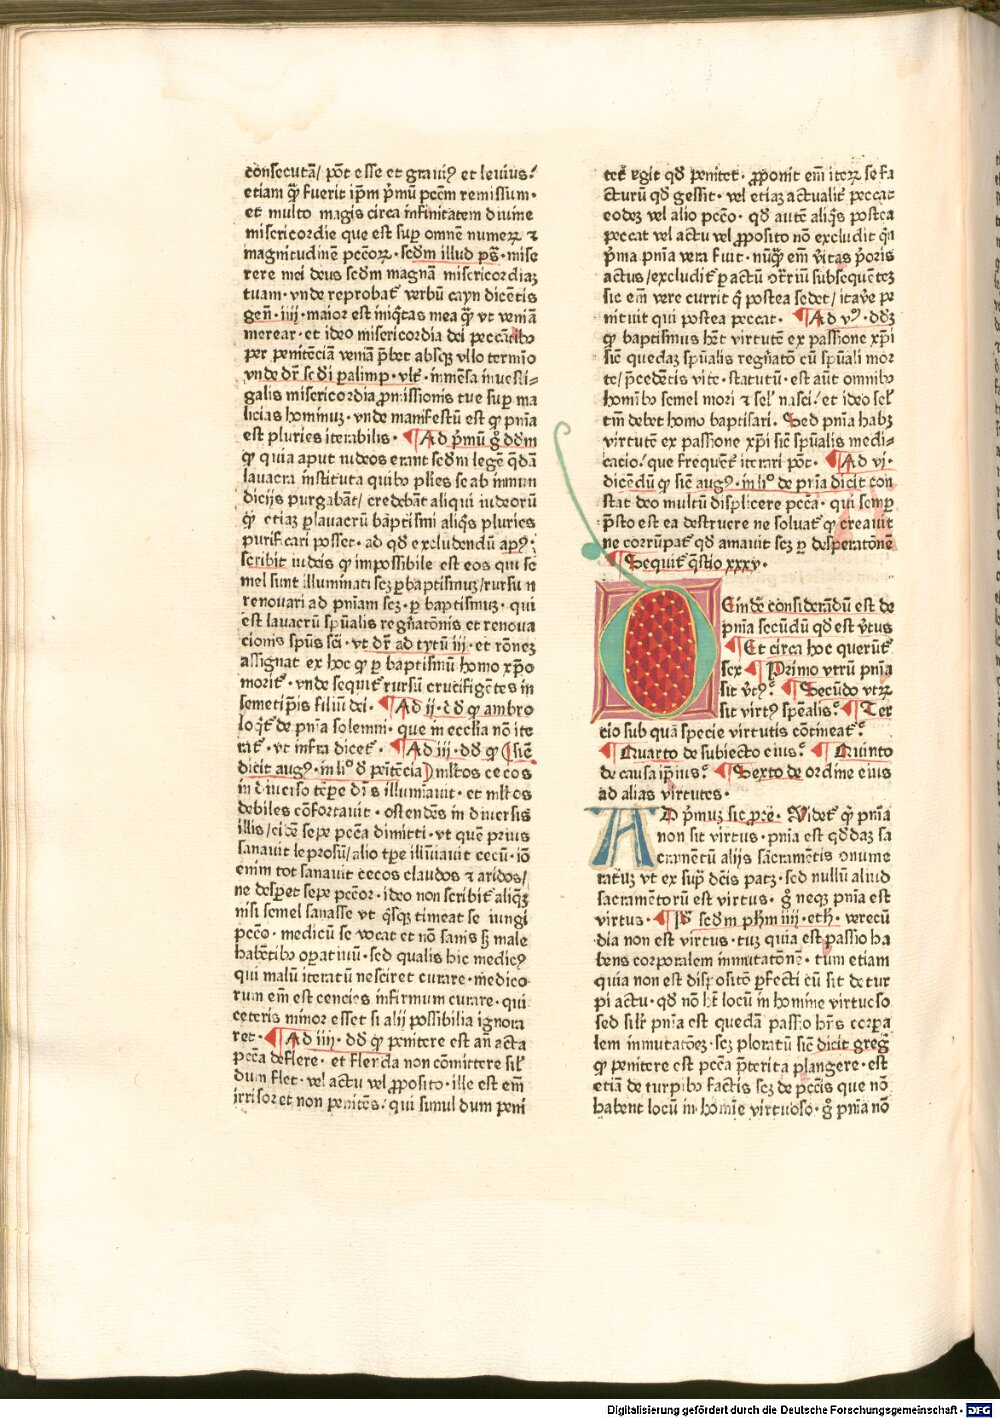 consecutā/ pōt esse et graviꝰ et levius:
etiam qͣꝫ fuerit ip̄m p̄mū pccm̄ remissum·
et multo magis circa infinitatem divine
misericordie que est sup̱ omnē numeꝝ ⁊
magnitudinē pccōꝝ· scdm̄ illud ps̄· mise
rere mei deus scdm̄ magnā misericordiaꝫ
tuam· vnde reprobat̄ verbū cayn dicētis
gen̄· iiij· maior est iniq̄tas mea qͣꝫ vt veniā
merear· et ideo misericordia dei peccātibꝰ
per penitēciā veniā p̄bet absqꝫ vllo termīo
vnde dr̄ scd̄i palimp· vlt̄· inmēsa investi⸗
galis misericordia ꝓmissionis tue sup̱ ma
licias hominuꝫ· vnde manifestū est ꝙ pn̄ia
est pluries iterabilis· ¶ Ad p̄mū gͦ dd̄m
ꝙ quia aput iudeos erant scdm̄ legē q̄dā
lavacra instituta quibꝰ pl̄ies se ab inmun
dicijs purgabāt/ credebāt aliqui iudeorū
ꝙ etiaꝫ ꝑ lavacrū baptismi aliq̄s pluries
purificari posset· ad qd̄ excludendū ap̄ꝰ·
scribit iudeis ꝙ impossibile est eos qui se
mel sunt illuminati scꝫ ꝑ baptismuꝫ/ rursū
renovari ad pn̄iam scꝫ· ꝑ baptismuꝫ· qui
est lavacrū sp̄ualis regn̄atōnis et renova
cionis sp̄us sc̄i· vt dr̄ ad tytū iij· et rōneꝫ
assignat ex hoc ꝙ ꝑ baptismū homo xp̄o
morit̄· vnde sequit̄ rursū crucifigētes in
semetip̄is filiū dei· ¶ Ad ij· dd̄ ꝙ ambro
loqͥt̄ de pn̄ia solemni· que in ecclīa nō ite
rat̄· vt infra dicet̄· ¶ Ad iij· dd̄ ꝙ sic̄
dicit augꝰ· in liͦ d̄ penitēcia ml̄tos cecos
in diverso tēpe dn̄s illumīavit· et ml̄tos
debiles cōfortavit· ostendēs in diversis
illis/ eidē sepe pcc̄a dimitti· vt quē prius
sanavit leprosū/ alio tp̄e illūiavit cecū· iō
enim tot sanavit cecos claudos ⁊ aridos/
ne desꝑet sepe pccōr· ideo non scribit̄ aliqꝫ
nisi semel sanasse vt qͥsqꝫ timeat se iungi
pccō· medicū se vocat et nō sanis sꝫ male
habētibꝰ oꝑatiuū· sed qualis hic medicꝰ
qui malū iteratū nesciret curare· medico
rum em̄ est cencies infirmum curare· qui
ceteris minor esset si alij possibilia ignora
ret· ¶ Ad iiij· dd̄ ꝙ penitere est an̄ acta
pcc̄a deflere· et flenda non cōmittere sil̄
dum flet· vel actu vel ꝓposito· ille est em̄
irrisor et non penitēs: qui simul dum peni
tet̄ agit qd̄ penitet· ꝓponit em̄ iteꝝ se fa
cturū qd̄ gessit· vel etiaꝫ actualit̄ peccat
eodeꝫ vel alio pccō· qd̄ autē aliq̄s postea
peccat vel actu vel ꝓposito nō excludit qͥn
p̄ma pn̄ia vera fuit· nūqͣꝫ em̄ v̄itas p̄oris
actus/ excludit̄ ꝑ actū ɔtͣriū subsequēteꝫ
sic em̄ vere currit qͥ postea sedet/ ita ve pe
nituit qui postea peccat· ¶ Ad vꝰ· dd̄ꝫ
ꝙ baptismus hēt virtutē ex passione xp̄i
sic̄ quedaꝫ sp̄ualis regn̄atō cū sp̄uali mor
te/ p̄cedētis vite· statutū· est aūt omnibꝰ
homībꝰ semel mori ⁊ sel̄ nasci: et ideo sel̄
tm̄ debet homo baptisari· Sed pn̄ia habꝫ
virtutē ex passione xp̄i sic̄ sp̄ualis medi⸗
cacio: que frequēt̄ iterari pōt· ¶ Ad vi·
dicēdū ꝙ sic̄ augꝰ· in liͦ de pn̄ia dicit con
stat deo multū displicere pcc̄a· qui semꝑ
p̄sto est ea destruere ne soluat̄ ꝙ creavit
ne corrūpat̄ qd̄ amavit scꝫ ꝑ desꝑatōnē
¶ Sequit̄ q̄stio xxxv·
Eindē cōsiderādū est de
pn̄ia secūdū qd̄ est v̄tus
¶ Et circa hoc querūt̄
sex ¶ Primo vtrū pn̄ia
sit v̄tꝰ: ¶ Secūdo vtꝝ
sit virtꝰ spēalis: ¶ Ter
cio sub qua specie virtutis cōtineat̄:
¶ Quarto de subiecto eius: ¶ Quinto
de causa ip̄ius: ¶ Sexto de ordine eius
ad alias virtutes·
AD p̄muꝫ sic ꝓce· Videt̄ ꝙ pn̄ia
non sit virtus· pn̄ia est qd̄daꝫ sa
cramētū alijs sacramētis ɔnume
ratūꝫ vt ex sup̱ dc̄is patꝫ· sed nullū aliud
sacramētorū est virtus· gͦ neqꝫ pn̄ia est
virtus· ¶ Pͥ scdm̄ ph̄m iiij· eth̄· verecū
dia non est virtus· tuꝫ quia est passio ha
bens corporalem inmutatōnē· tum etiam
quia non est dispositō ꝑfecti cū sit de tur
pi actu· qd̄ nō h̄t locū in homine virtuoso
sed sil̄r pn̄ia est quedā passio hn̄s corꝑa
lem inmutatōeꝫ· scꝫ ploratū sic̄ dicit greḡ
ꝙ penitere est pcc̄a p̄terita plangere· est
etiā de turpibꝰ factis scꝫ de pcc̄is que nō
habent locū in homīe virtuoso· gͦ pn̄ia nō
Digitalisierung gefördert durch die Deutsche Forschungsgemeinschaft - DFG